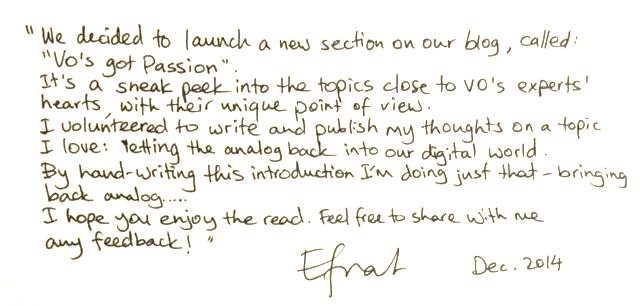 "We decided to launch a new section on our blog, called:
"Vo's got Passion".
It's a sneak peek into the topics close to VO's experts'
hearts, with their unique point of view.
I volunteered to write and publish my thoughts on a topic
I love: letting the analog back into our digital world.
By hand-writing this introduction I'm doing just that - bringing
back analog.....
I hope you enjoy the read. Feel free to share with me
any feedback! "
Efrat Dec. 2014